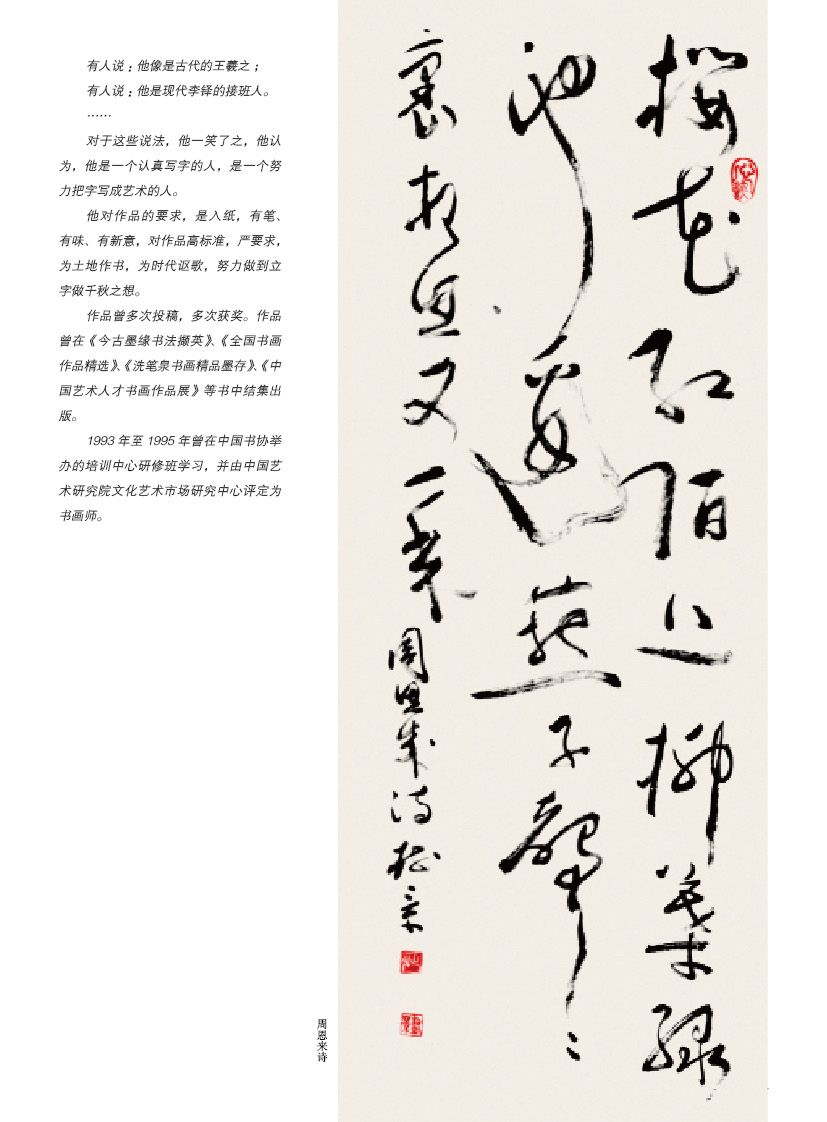 有人说：他像是古代的王羲之；
有人说：他是现代李铎的接班人。
……
对于这些说法，他一笑了之，他认
为，他是一个认真写字的人，是一个努
力把字写成艺术的人。
他对作品的要求，是入纸，有笔、
有味、有新意，对作品高标准，严要求，
为土地作书，为时代讴歌，努力做到立
字做千秋之想。
作品曾多次投稿，多次获奖。作品
曾在《今古墨缘书法撷英》、《全国书画
作品精选》、《洗笔泉书画精品墨存》、《中
国艺术人才书画作品展》等书中结集出
版。
1993年至1995年曾在中国书协举
办的培训中心研修班学习，并由中国艺
术研究院文化艺术市场研究中心评定为
书画师。
樱花红陌上柳叶绿
池边燕子声〻
里相思又一年
周恩来诗
周恩来诗